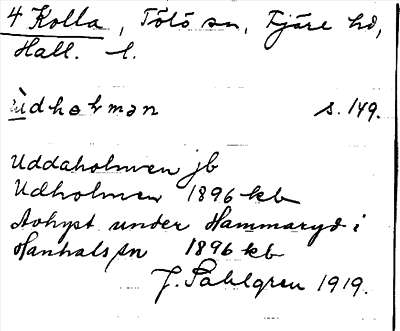 4 Kolla, Tölö sn, Fjäre hd,
Hall. l.
ùdhɘlmən s. 149.
Uddaholmen jb
Udholmen 1896 kb
Avhyst under Hammaryd i
Hanhals sn 1896 kb
J. Sahlgren 1919.